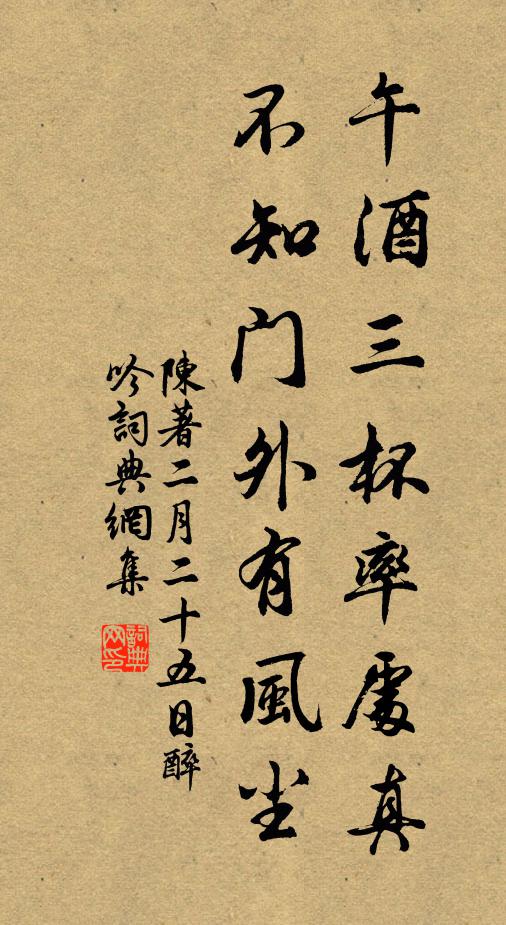 午酒三杯率處真
不知門外有風尘
陳著二月二十五日醉
吟詞典網集
詞典网印